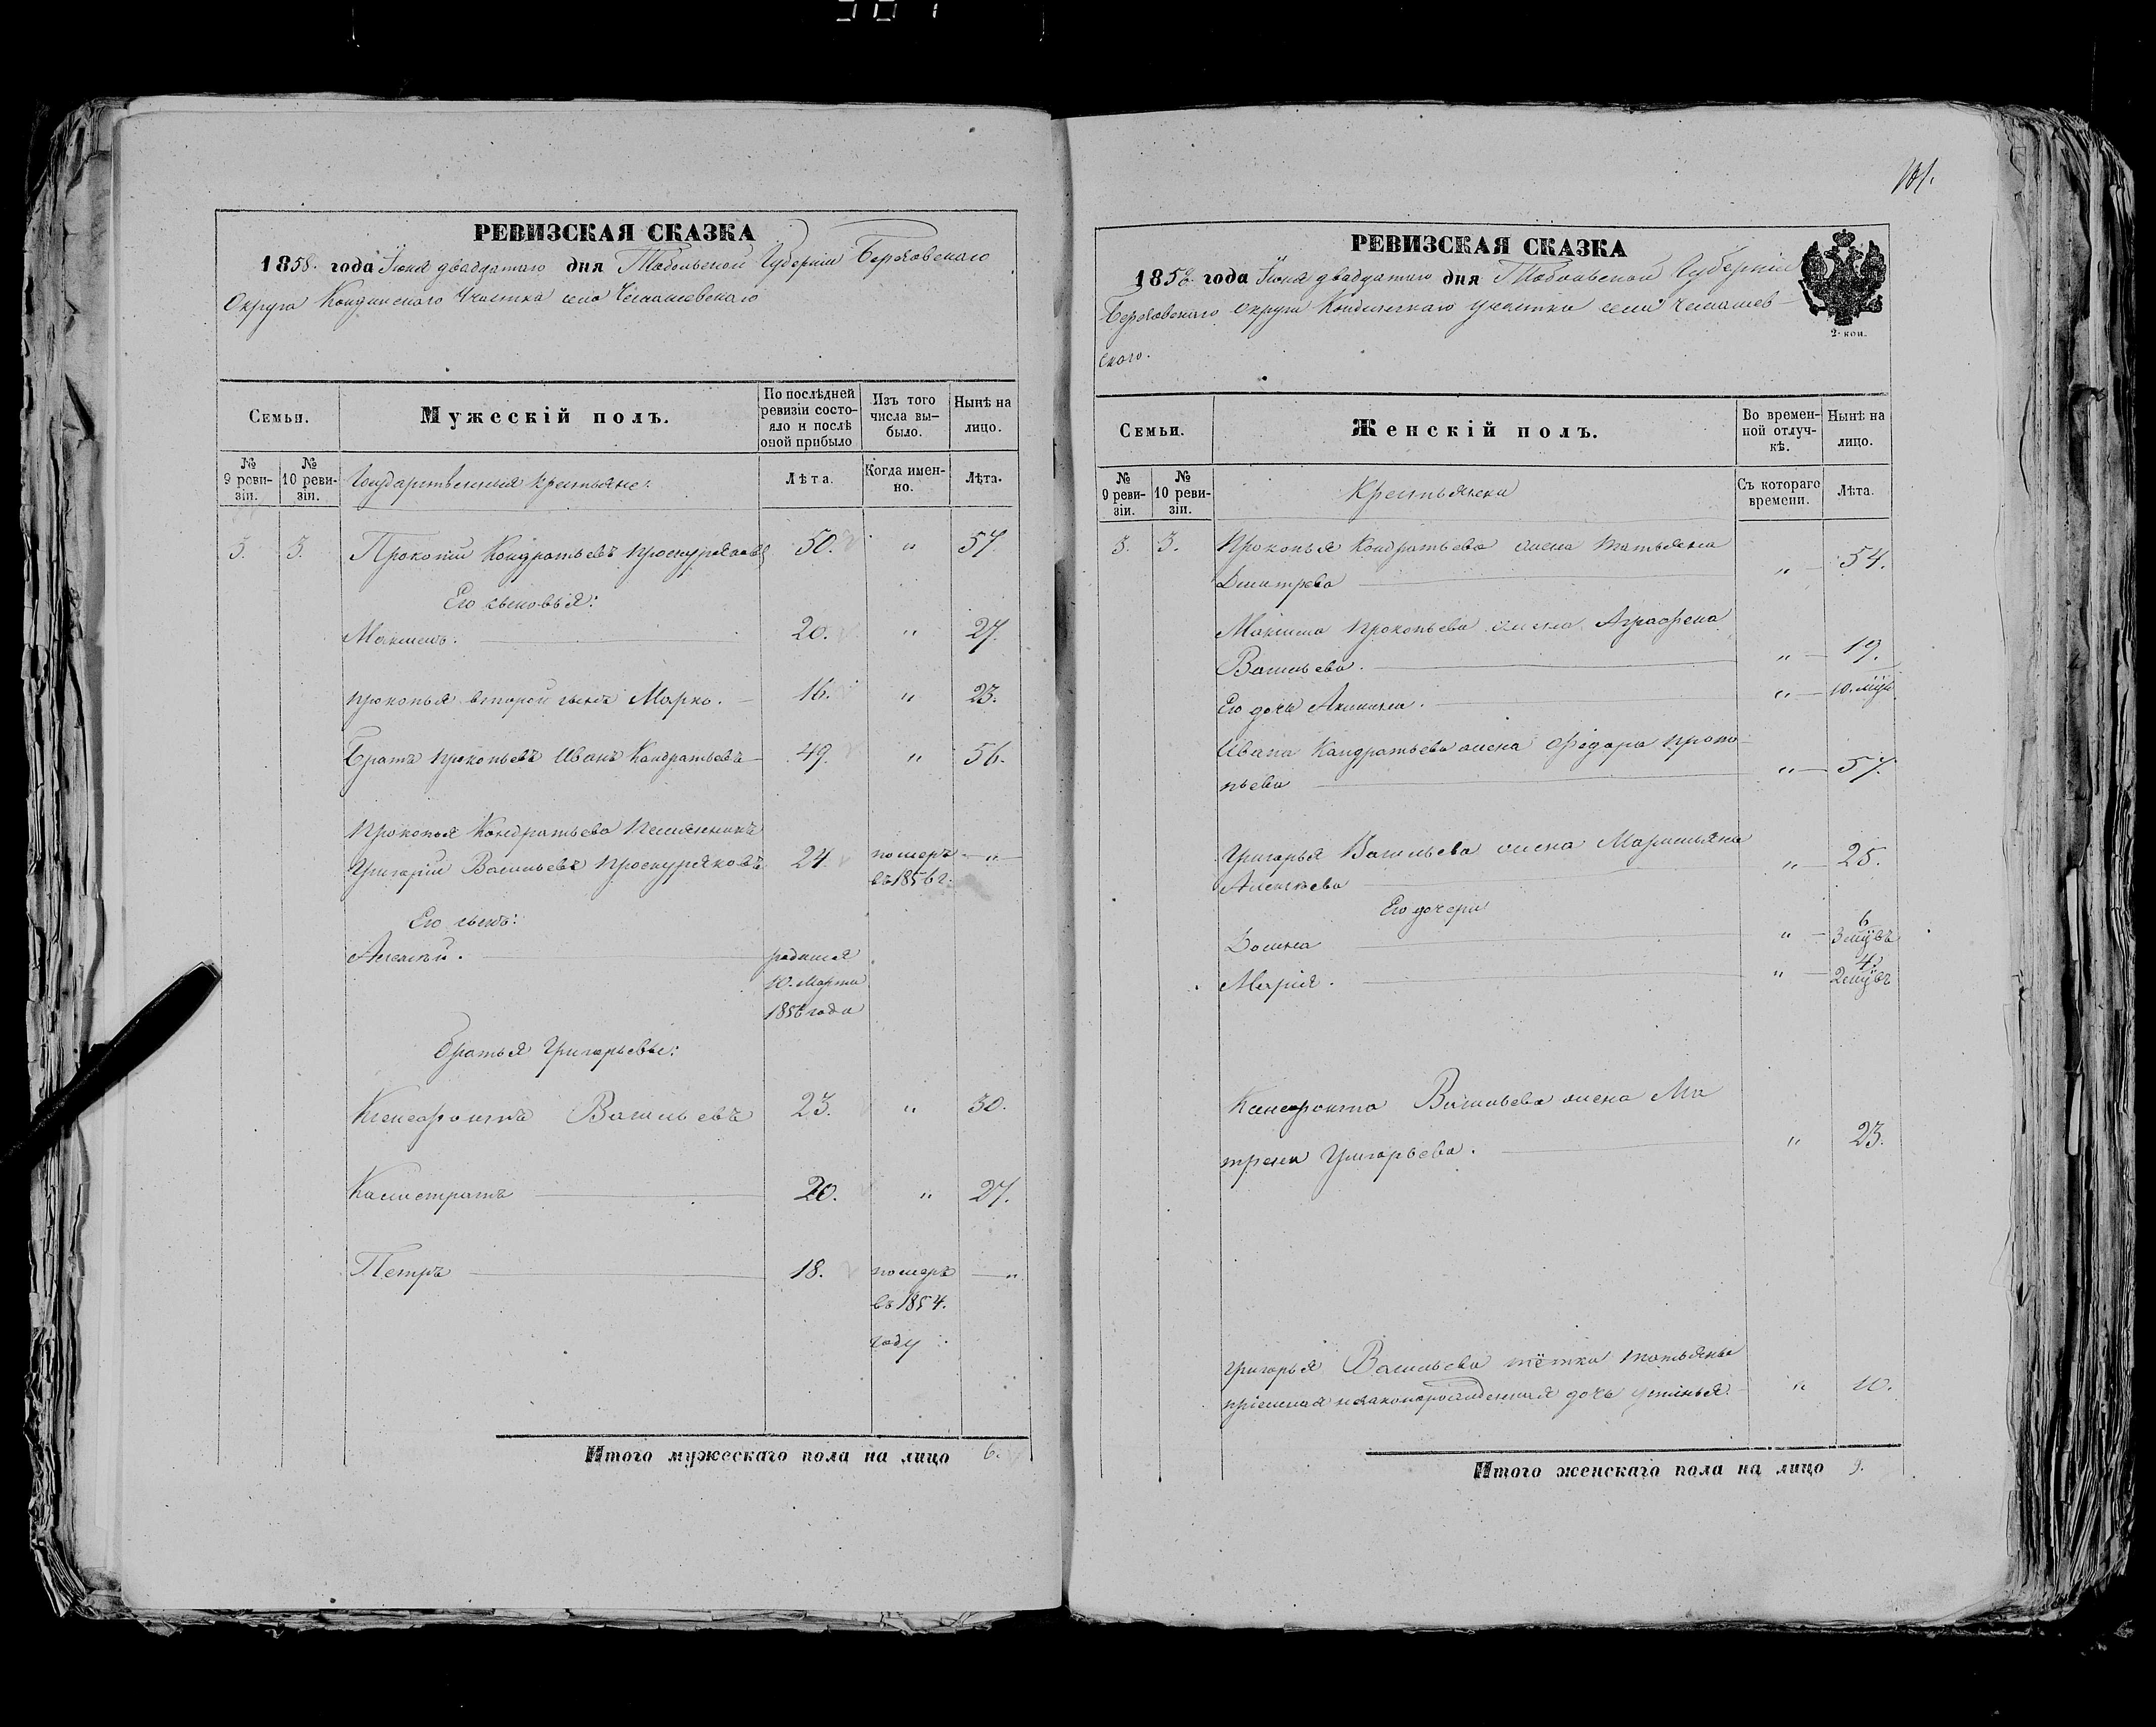 РЕВИЗСКАЯ СКАЗКА
1858. года Іюня двадцатаго дня Тобольской Губерніи Березовскаго
Округа Кондинскаго Участка села Чемашевскаго
Семьи.
Мужескій полъ.
По послѣдней ревизіи состояло и послѣ оной прибыло
Изъ того числа выбыло.
Нынѣ на лицо.
№ 9 ревизіи.
№ 10 ревизіи.
Государственныя крестьяне:
Лѣта.
Когда именно.
Лѣта.
3. 3. Прокопій Кондратьевъ Проскуряковъ 50. " 57.
Его сыновья:
Максимъ. 20. " 27.
Прокопья второй сынъ Марко. 16. " 23.
Братъ Прокопьевъ Иванъ Кондратьевъ 49. " 56.
Прокопья Кондратьева племянникъ
Григорій Васильевъ Проскуряковъ 24 померъ въ 1856 г. "
Его сынъ:
Алексѣй. родился
10. Марта
1856 года
Братья Григорьевы:
Ксенофонтъ Васильевъ 23. " 30.
Калистратъ 20. " 27.
Петръ 18. померъ "
въ 1854.
году
Итого мужескаго пола на лицо 6.
101.
РЕВИЗСКАЯ СКАЗКА
1858. года Іюня двадцатаго дня Тобольской Губерніи
Березовскаго Округа Кондинскаго участка села Чемашев-
скаго.
2 коп.
Семьи.
Женскій полъ.
Во временной отлучкѣ.
Нынѣ на лицо.
№ 9 ревизіи.
№ 10 ревизіи.
Крестьянки
Съ котораго времени.
Лѣта.
3. 3. Прокопья Кондратьева жена Татьяна
Дмитрева " 54.
Максима Прокопьева жена Аграфена
Васильева. " 19.
Его дочь Акилина. " 10. мѣс.
Ивана Кондратьева жена Федора Проко-
пьева " 57.
Григорья Васильева жена Маримьяна
Алексѣева " 25.
Его дочери
Домна " 6
3 мѣс.
Марія. " 4.
2 мѣс.
Ксенофонта Васильева жена Ма
трена Григорьева. " 23.
Григорья Васильева тётки Татьяны
пріемная незаконорожденная дочь Устинья. " 10.
Итого женскаго пола на лицо 9.